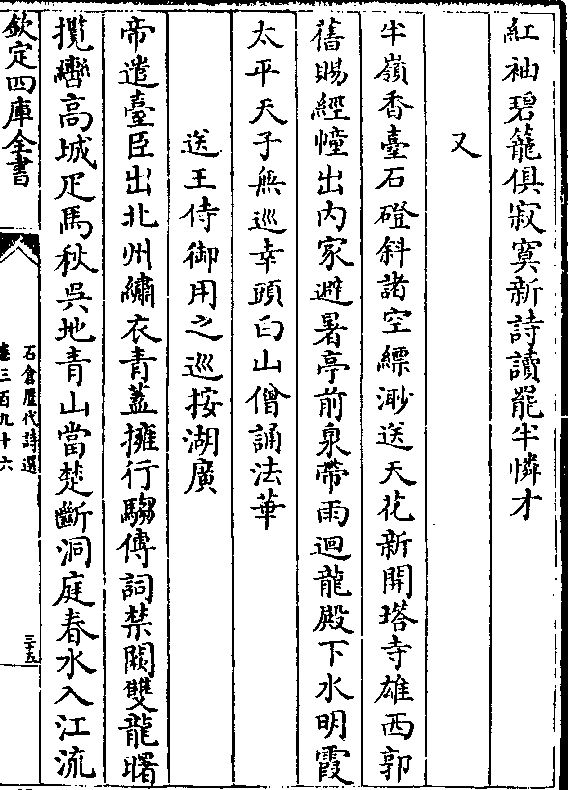 紅袖碧籠俱寂寞新詩讀罷半憐才
又
半嶺香臺石磴斜諸空縹渺送天花新開塔寺雄西郭
舊賜經幢出内家避暑亭前泉帶雨迴龍殿下水明霞
太平天子無巡幸頭白山僧誦法華
送王侍御用之巡按湖廣
帝遣臺臣出北州繡衣青蓋擁行騶傳詞禁闕雙龍曙
攬轡高城疋馬秋吳地青山當楚斷洞庭春水入江流
欽定四庫全書
石倉歷代詩選
卷三百九十六
三十五